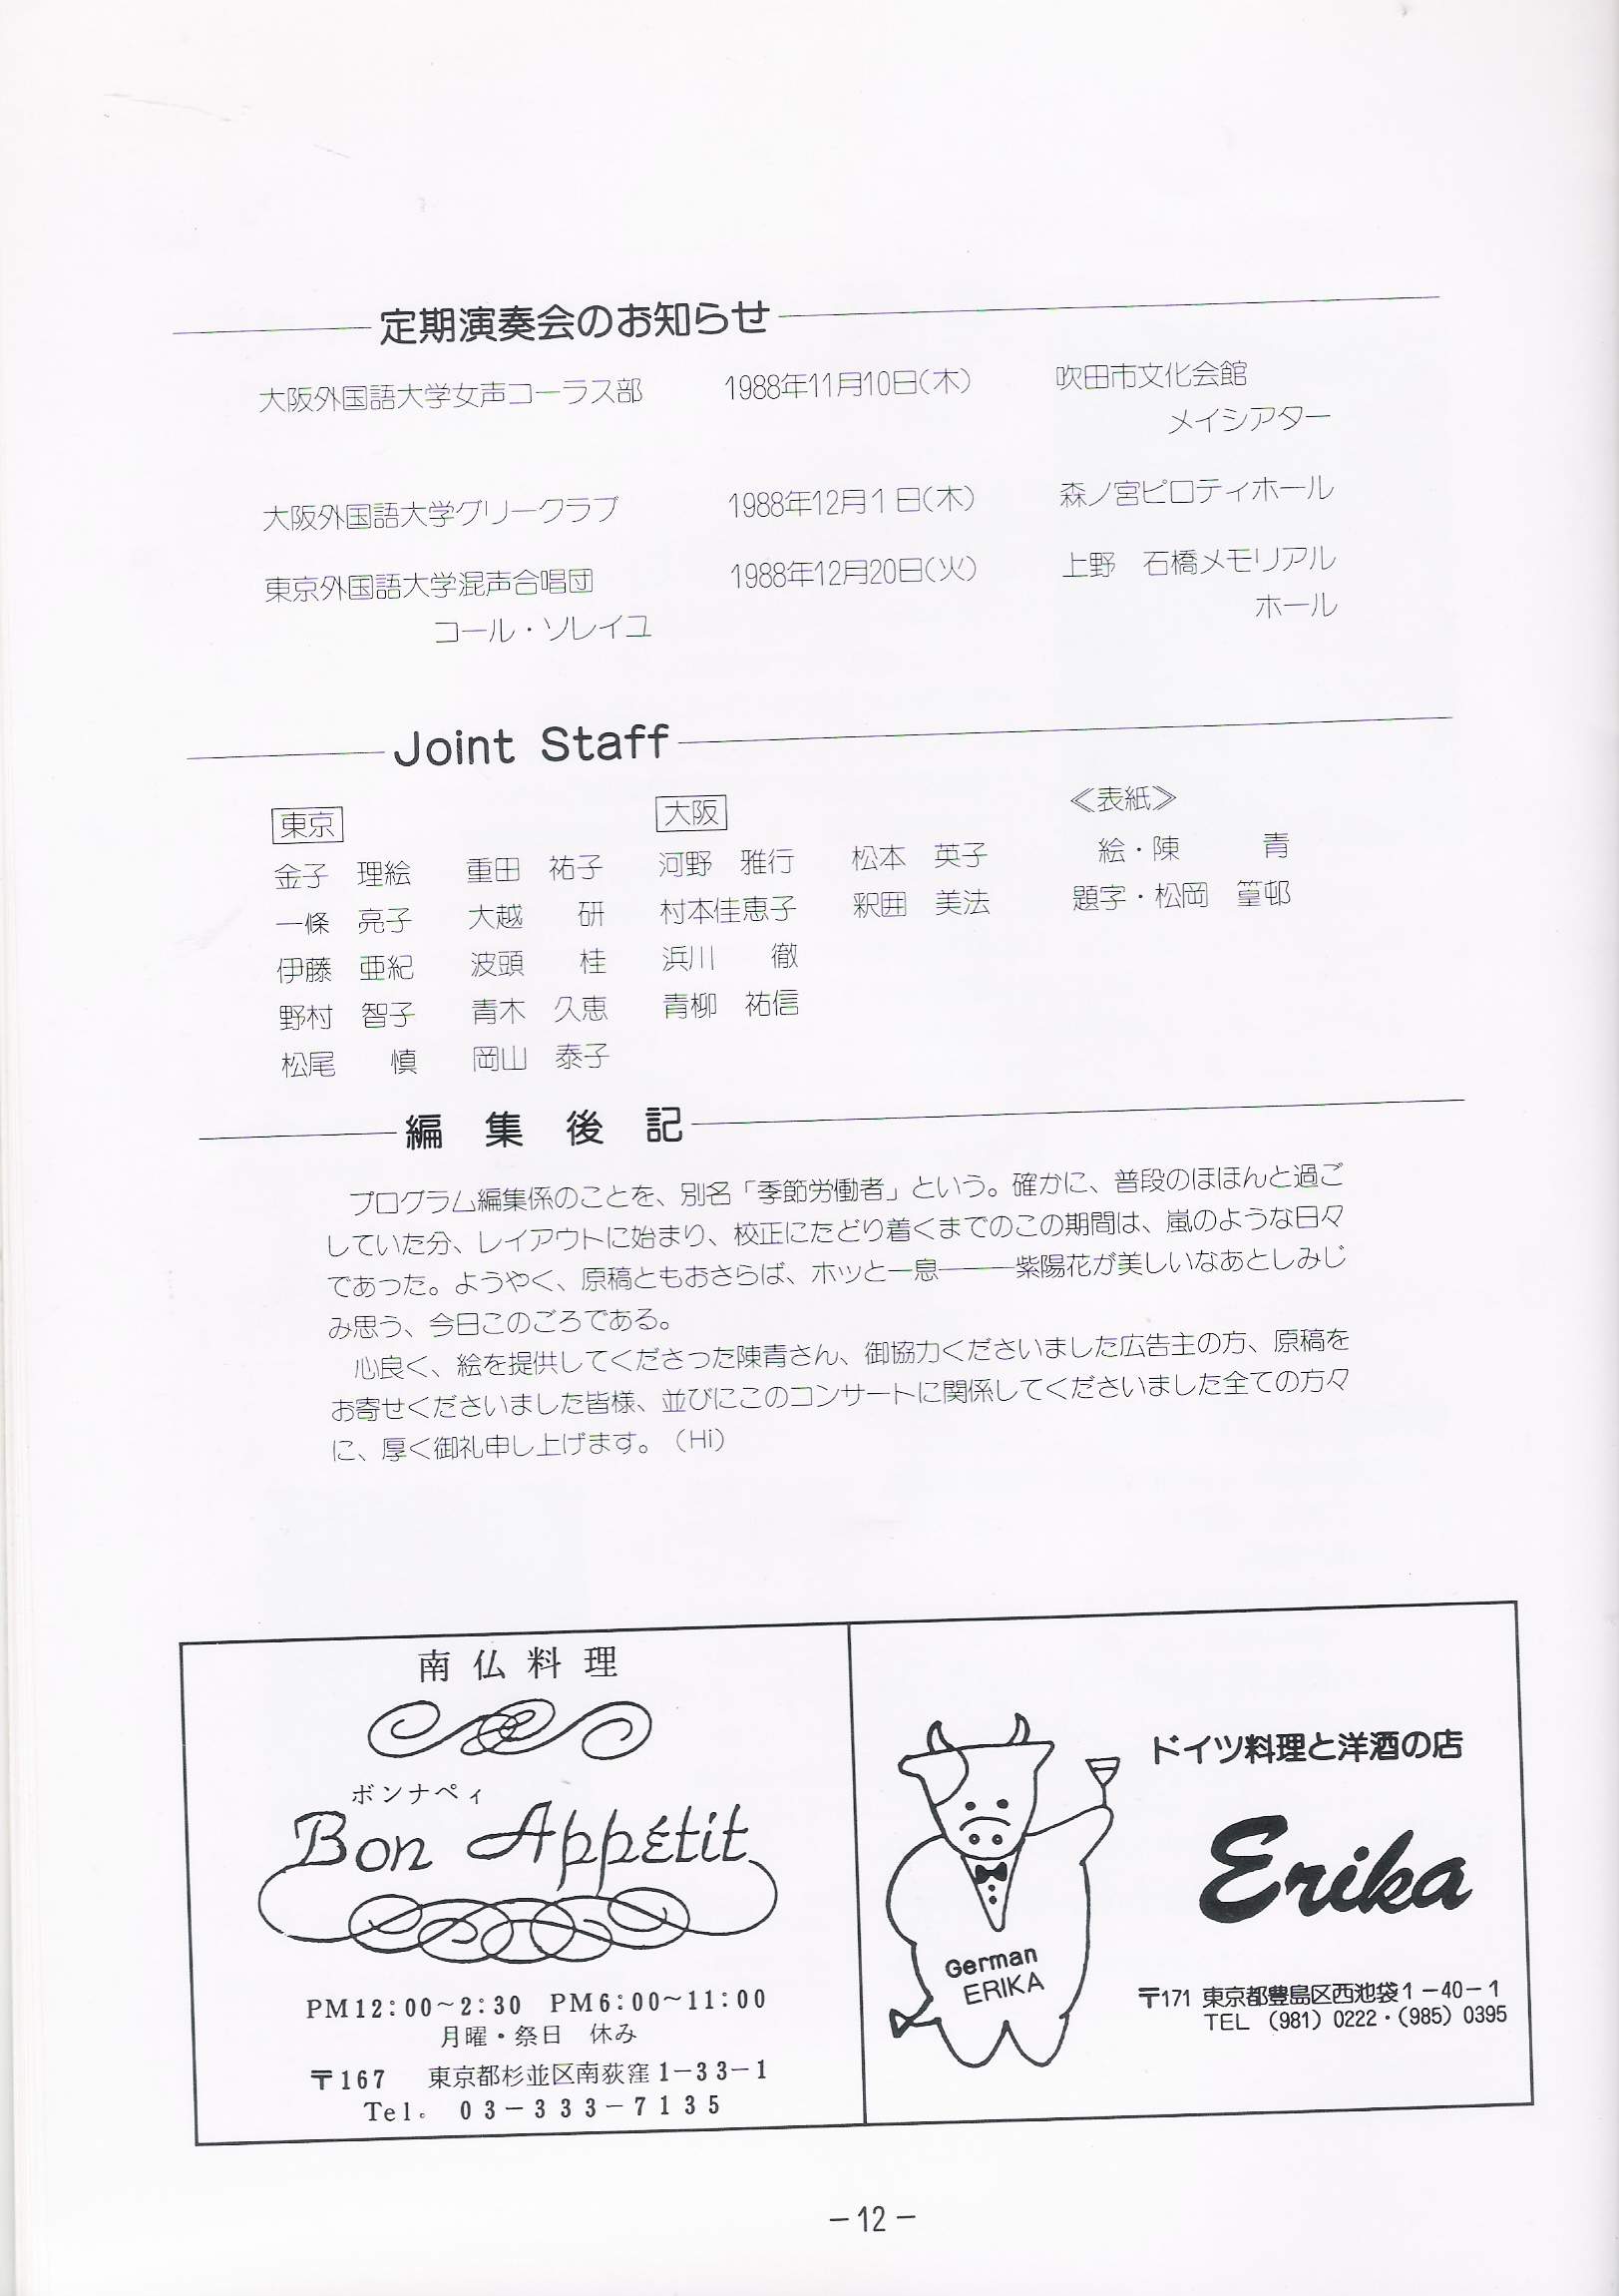 定期演奏会のお知らせ
大阪外国語大学女声コーラス部　1988年11月10日(木)　吹田市文化会館
メイシアター
大阪外国語大学グリークラブ　1988年12月1日(木)　森ノ宮ピロティホール
東京外国語大学混声合唱団　1988年12月20日(火)　上野　石橋メモリアル
コール・ソレイユ　ホール
Joint Staff
東京　大阪　≪表紙≫
金子　理絵　重田　祐子　河野　雅行　松本　英子　絵・陳　青
一條　亮子　大越　研　村本佳恵子　釈囲　美法　題字・松岡　篁邨
伊藤　亜紀　波頭　桂　浜川　徹
野村　智子　青木　久恵　青柳　祐信
松尾　慎　岡山　泰子
編集後記
プログラム編集係のことを、別名「季節労働者」という。確かに、普段のほほんと過ご
していた分、レイアウトに始まり、校正にたどり着くまでのこの期間は、嵐のような日々
であった。ようやく、原稿ともおさらば、ホッと一息―――紫陽花が美しいなあとしみじ
み思う、今日このごろである。
心良く、絵を提供してくださった陳青さん、御協力くださいました広告主の方、原稿を
お寄せくださいました皆様、並びにこのコンサートに関係してくださいました全ての方々
に、厚く御礼申し上げます。（Hi）
南仏料理
ボンナペィ
Bon Appétit
PM12:00~2:30　PM6:00~11:00
月曜・祭日　休み
〒167　東京都杉並区南荻窪1-33-1
Tel。03-333-7135
ドイツ料理と洋酒の店
Erika
German
ERIKA
〒171 東京都豊島区西池袋1-40-1
TEL (981) 0222・(985) 0395
-12-